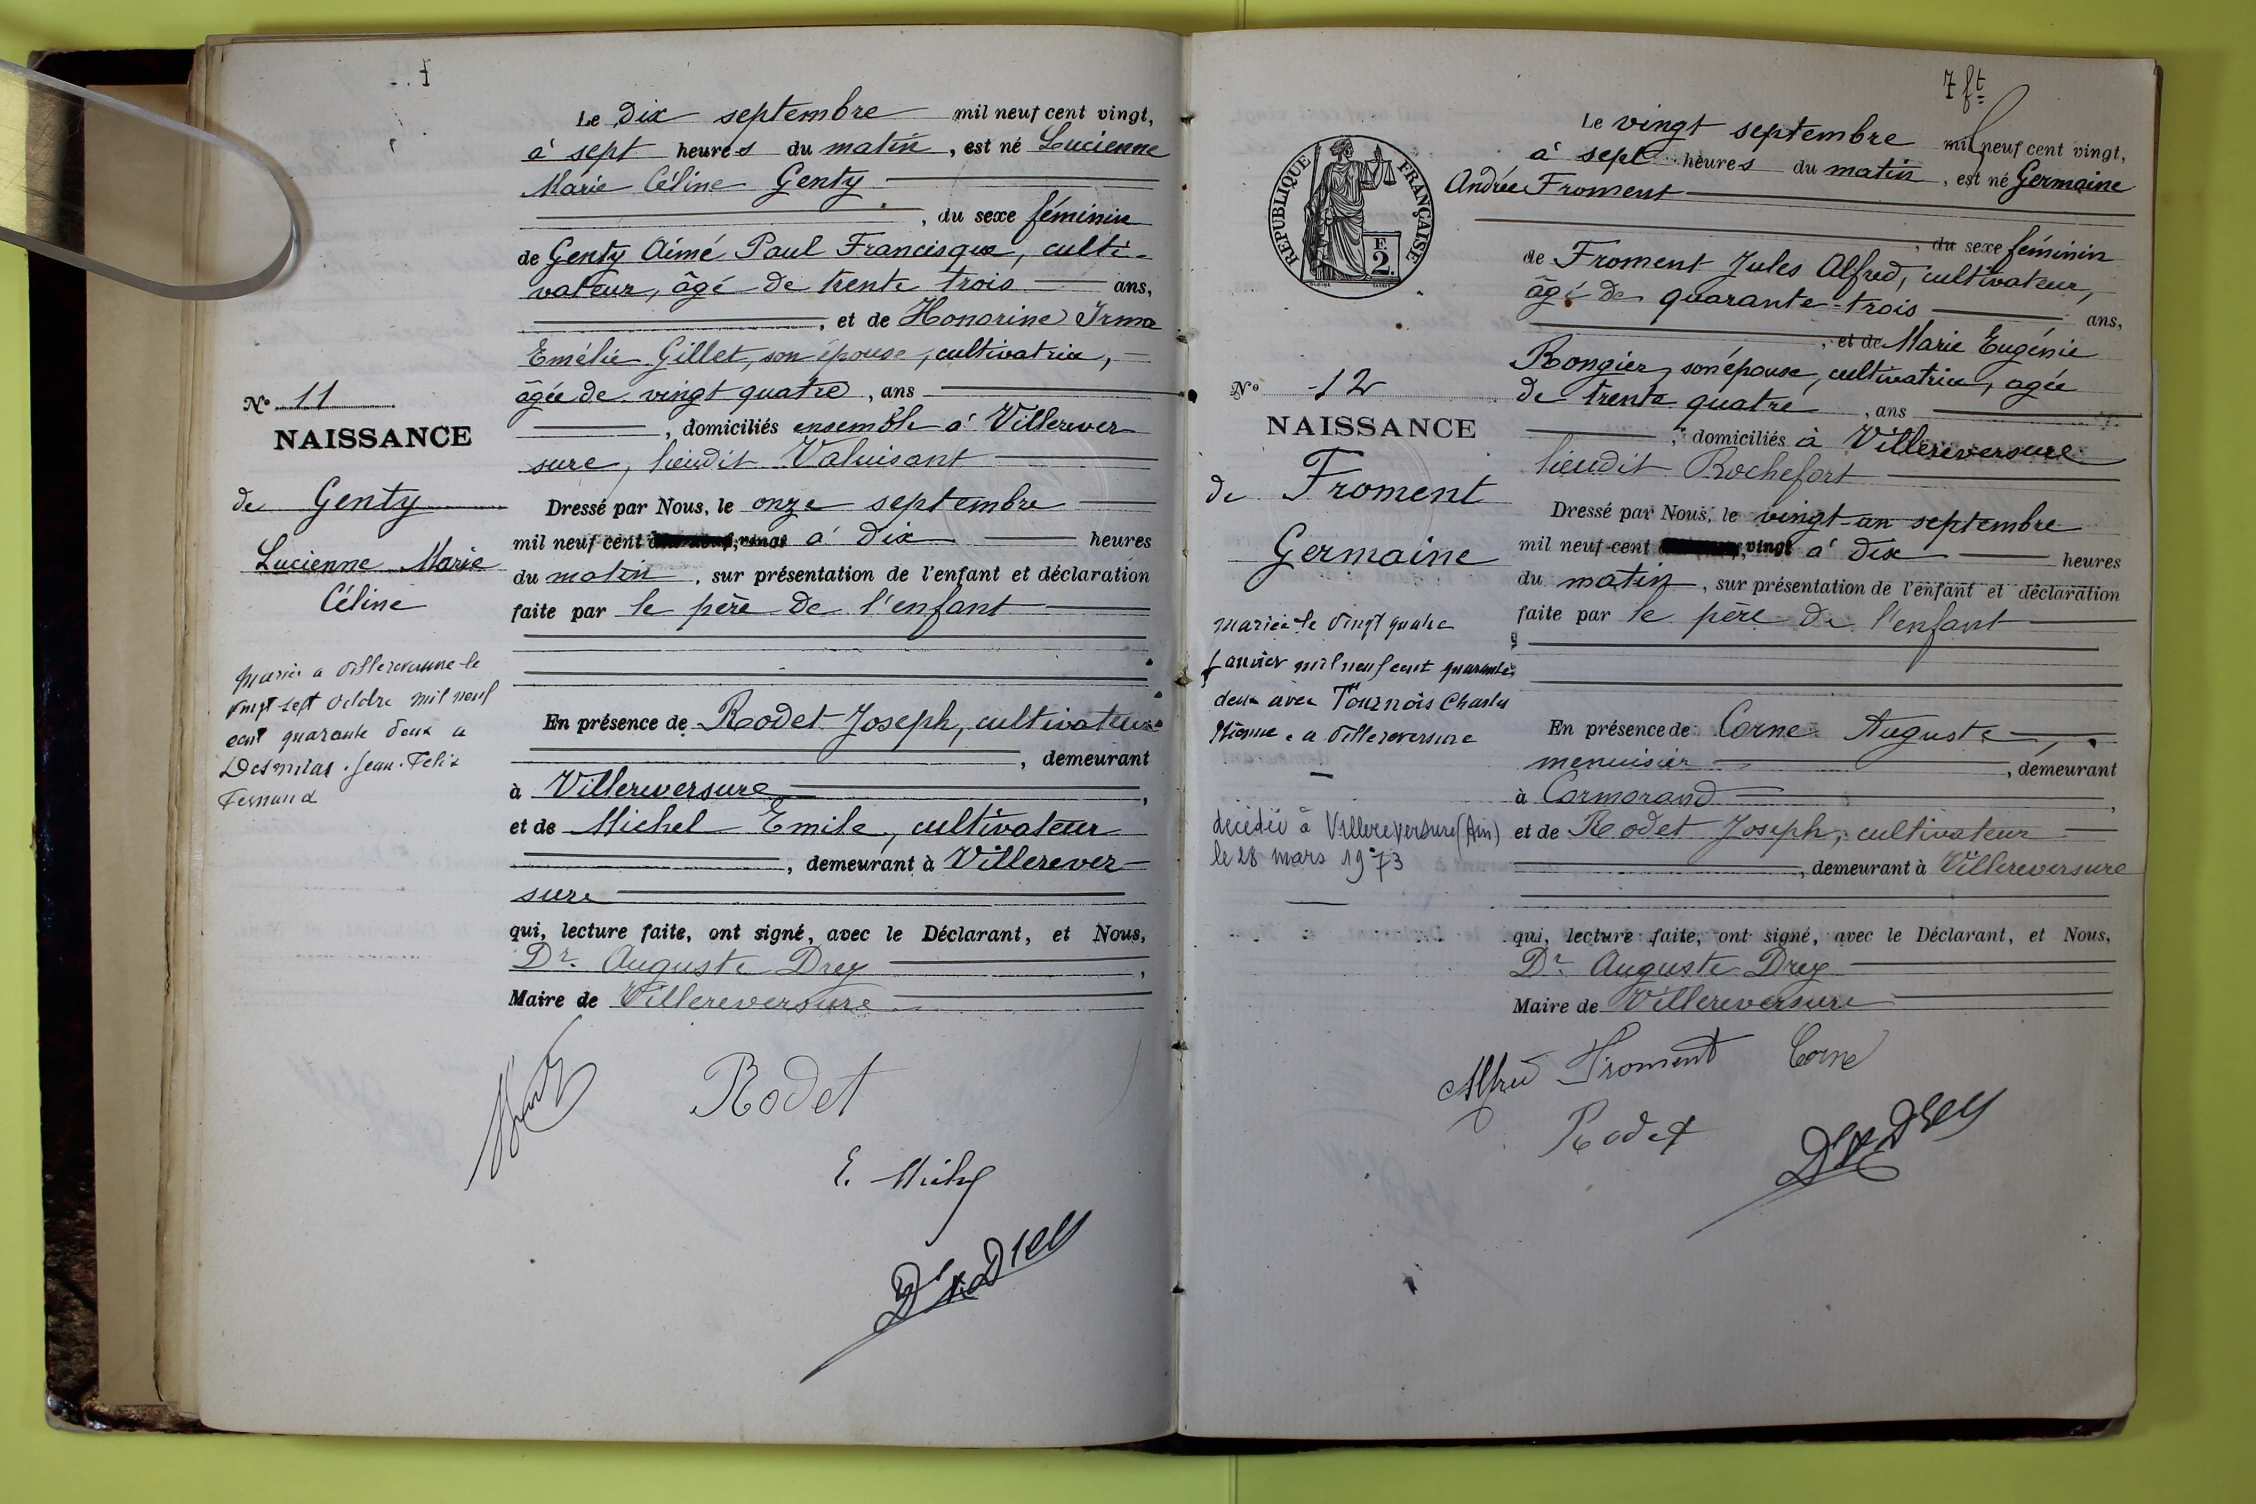 Le dix septembre mil neuf cent vingt,
à sept heures du matin, est né Lucienne
Marie Céline Genty
, du sexe féminin
de Genty Aimé Paul Francisque, culti-
vateur, âgé de trente trois ans,
, et de Honorine Irma
Emélie Gillet, son épouse, cultivatrice,
âgée de vingt quatre, ans
, domiciliés ensemble à Villerever
sure, lieudit Valuisant
Dressé par Nous, le onze septembre
mil neuf cent vingt à dix heures
du matin, sur présentation de l'enfant et déclaration
faite par le père de l'enfant
En présence de Rodet Joseph, cultivateur
, demeurant
à Villereversure,
et de Michel Emile, cultivateur
, demeurant à Villerever
sure
qui, lecture faite, ont signé, avec le Déclarant, et Nous,
Dr. Auguste Drey,
Maire de Villereversure
Rodet
E. Michel
Dr A Drey
No 11
NAISSANCE
de Genty
Lucienne Marie
Céline
Mariée a Villereversure le
vingt sept octobre mil neuf
cent quarante deux a
Jean Felix
Fernand
7 ft
Le vingt septembre mil neuf cent vingt,
à sept heures du matin, est né Germaine
Andrée Froment
, du sexe féminin
de Froment Jules Alfred, cultivateur,
âgé de quarante-trois ans,
, et de Marie Eugénie
Rongier, son épouse, cultivatrice, agée
de trente quatre, ans
, domiciliés à Villereversure
lieudit Rochefort
Dressé par Nous, le vingt-un septembre
mil neuf cent vingt à dix heures
du matin, sur présentation de l'enfant et déclaration
faite par le père de l'enfant
En présence de Corne Auguste,
menuisier, demeurant
à Cormorand,
et de Rodet Joseph, cultivateur
, demeurant à Villereversure
qui, lecture faite, ont signé, avec le Déclarant, et Nous,
Dr Auguste Drey
Maire de Villereversure
Alfred Froment Corne
Rodet
Dr A Drey
RÉPUBLIQUE FRANÇAISE
F.
2.
No 12
NAISSANCE
de Froment
Germaine
mariée le vingt quatre
Janvier mil neuf cent quarante
deux avec Tournois Charles
Etienne. a Villereversure
décédée à Villereversure (Ain)
le 28 mars 1973